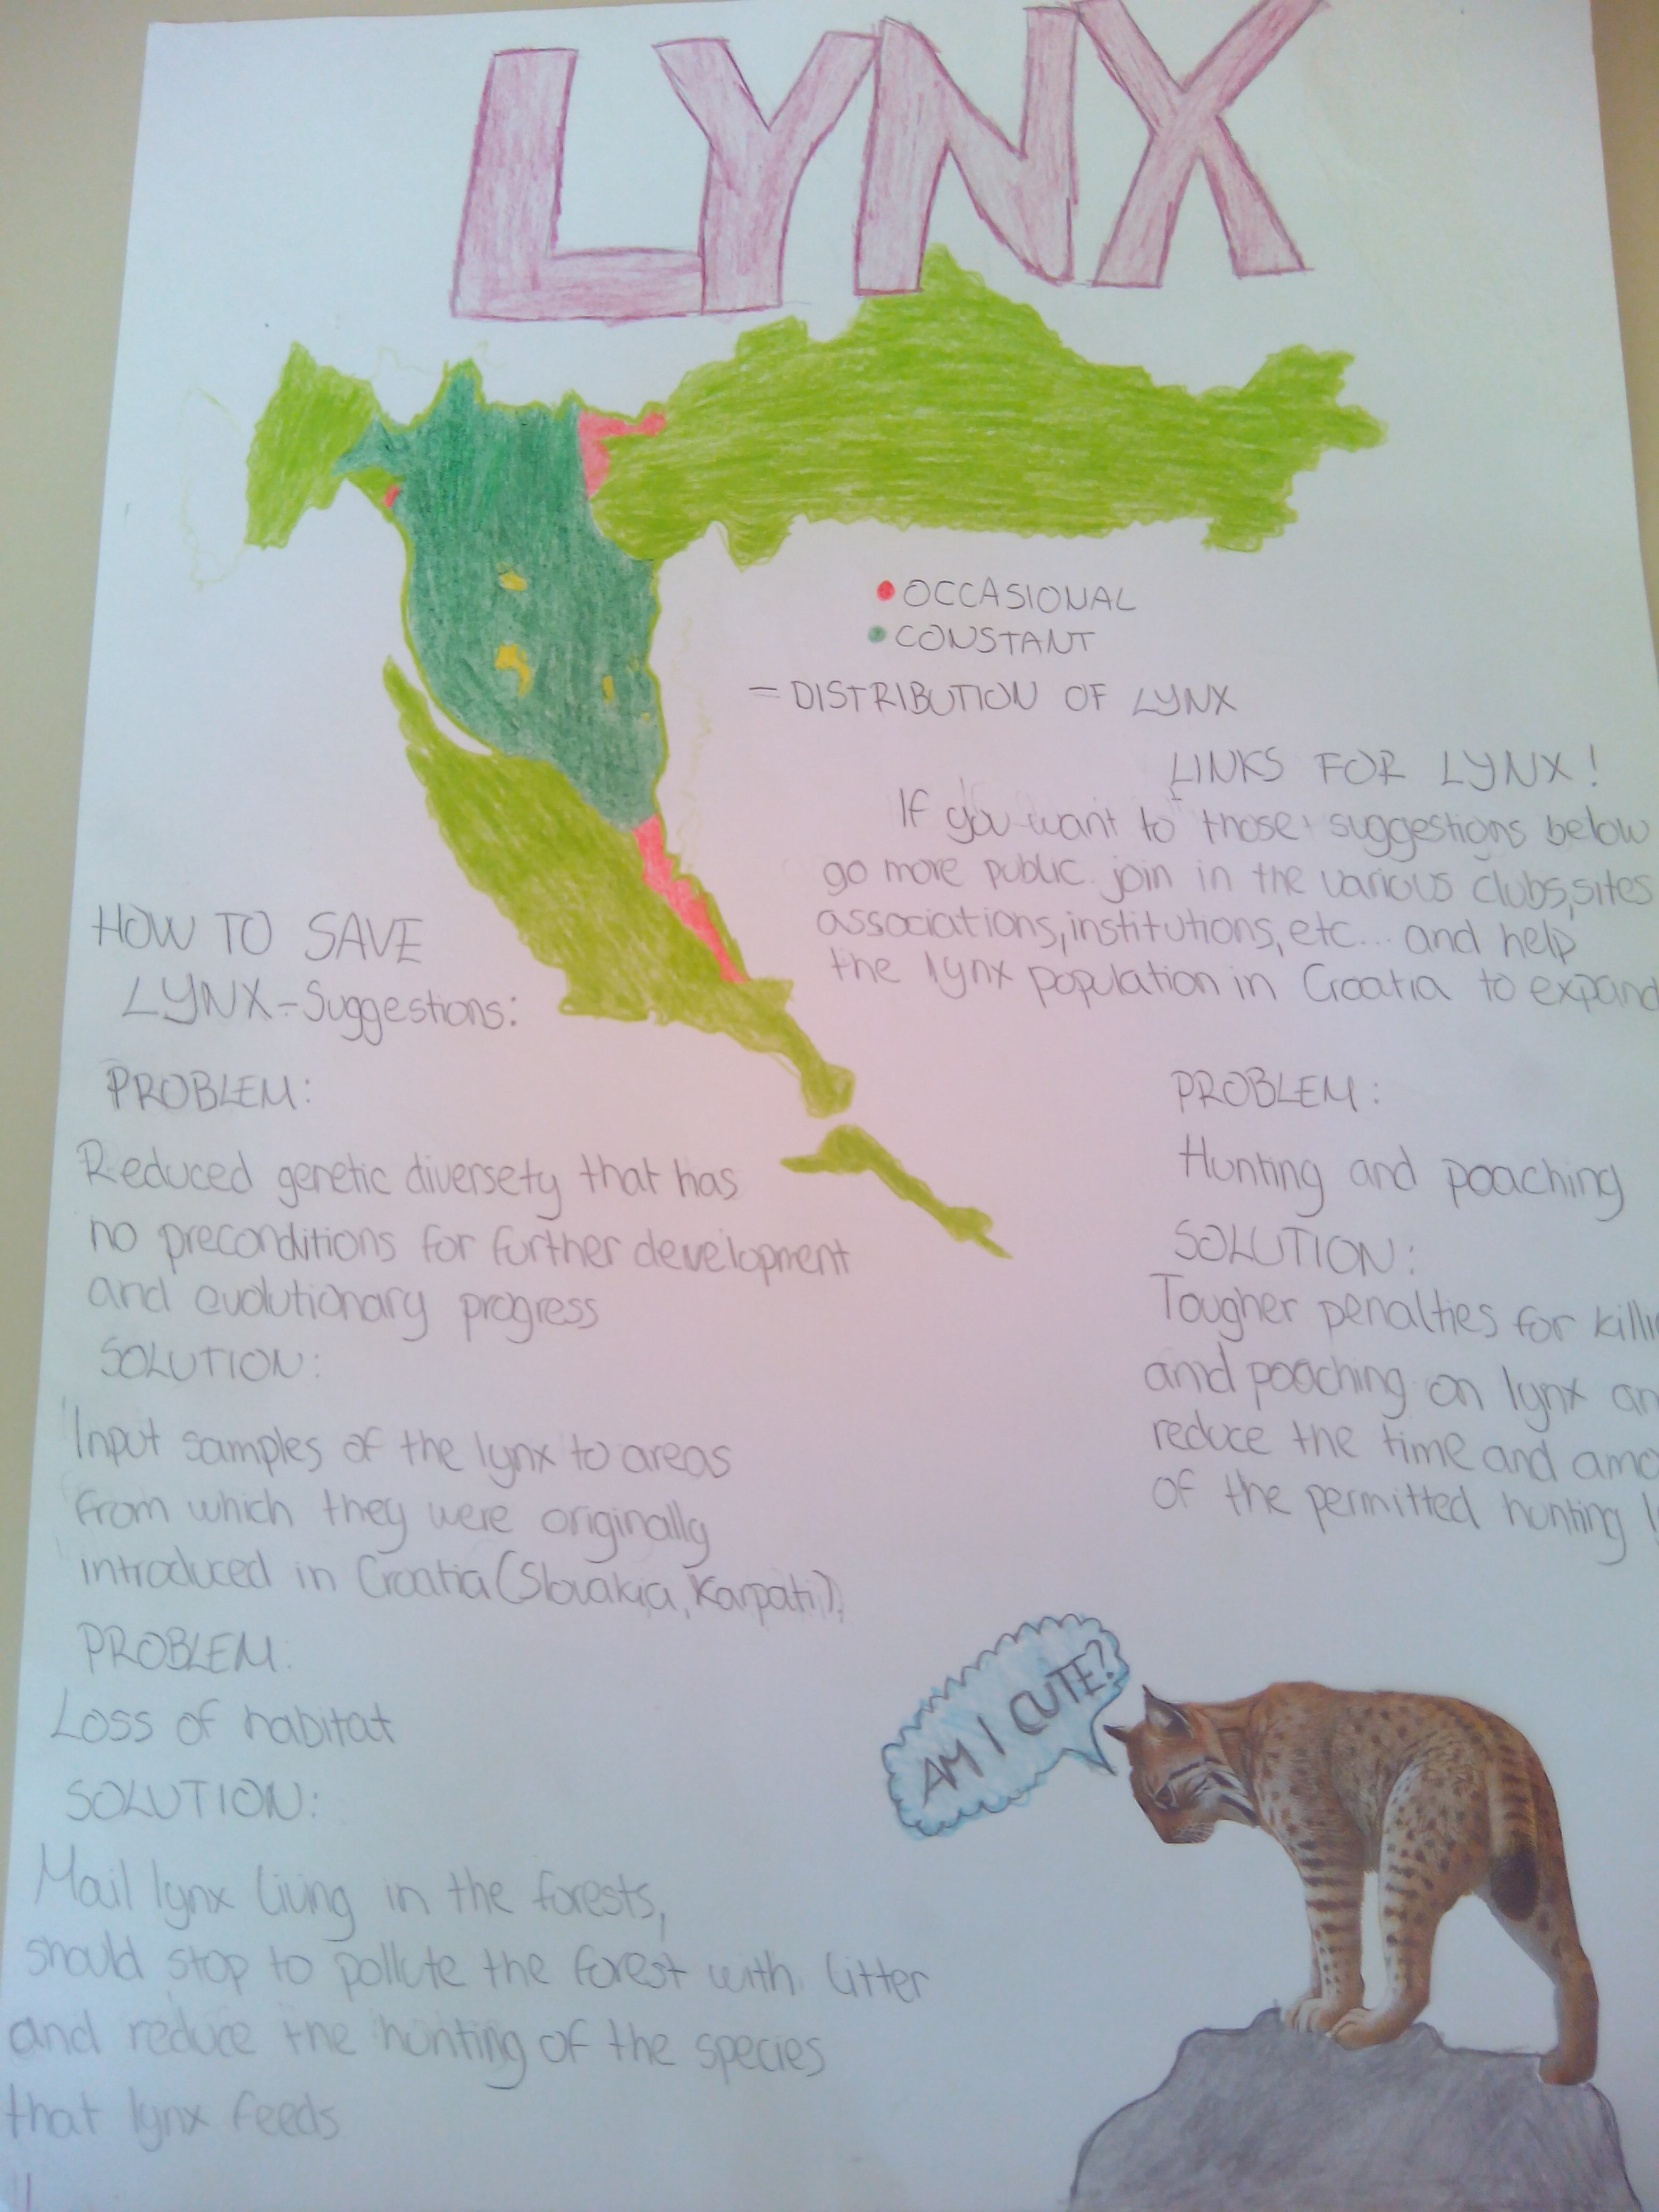 LYNX
• OCCASIONAL
• CONSTANT
= DISTRIBUTION OF LYNX
LINKS FOR LYNX!
If you want to those suggestions below
go more public join in the various clubs, sites
associations, institutions, etc... and help
the lynx population in Croatia to expand
HOW TO SAVE
LYNX - Suggestions:
PROBLEM:
Reduced genetic diversety that has
no preconditions for further development
and evolutionary progress
SOLUTION:
Input samples of the lynx to areas
from which they were originally
introduced in Croatia (Slovakia, Karpati).
PROBLEM.
Loss of habitat
SOLUTION:
Mail lynx living in the forests,
should stop to pollute the forest with litter
and reduce the hunting of the species
that lynx feeds
PROBLEM:
Hunting and poaching
SOLUTION:
Tougher penalties for
and poaching on lynx
reduce the time and
of the permitted hunting
AM I CUTE?